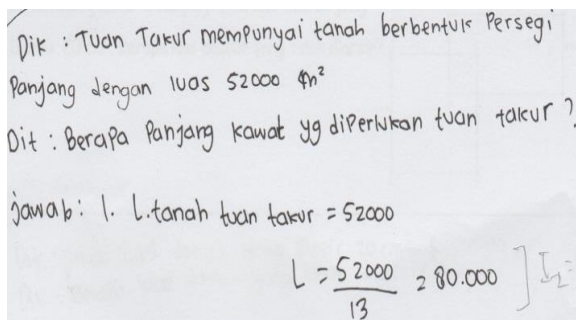 Dik : Tuan Takur mempunyai tanah berbentuk Persegi
Panjang dengan luas 52000 m²
Dit : Berapa Panjang kawat yg diperlukan tuan takur ?
jawab : 1. L.tanah tuan takur = 52000
L = 52000/13 = 80.000 ] I₂